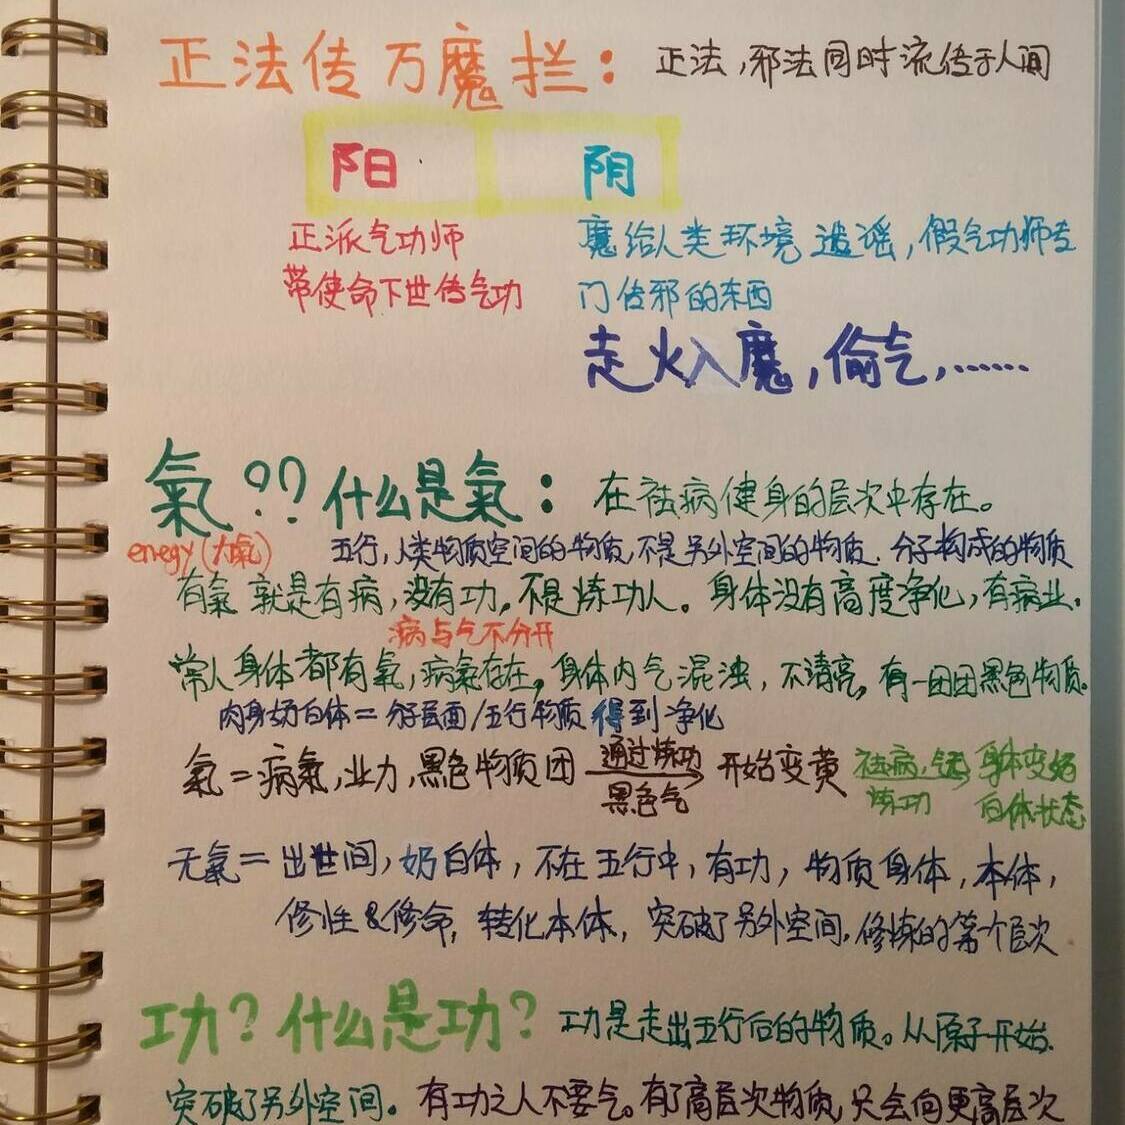 正法传万魔拦：正法，邪法同时流传于人间
阳 阴
正派气功师
带使命下世传气功
魔给人类环境造谣，假气功师专
门传邪的东西
走火入魔，偷气，……
氣？？什么是氣：在祛病健身的层次中存在。
enegy（大氣） 五行，人类物质空间的物质，不是另外空间的物质．分子构成的物质
有氣就是有病，没有功。不是炼功人。身体没有高度净化，有病业．
病与气不分开
常人身体都有氣，病氣存在。身体内气混浊，不清亮，有一团团黑色物质．
肉身奶白体＝分子层面/五行物质得到净化
氣＝病氣，业力，黑色物质团 通过炼功 开始变黄 祛病， 身体变好
黑色气 炼功 白体状态
无氣＝出世间，奶白体，不在五行中，有功，物质身体，本体，
修性&修命，转化本体，突破了另外空间．修炼的第个层次
功？什么是功？功是走出五行后的物质。从原子开始．
突破了另外空间。有功之人不要气。有了高层次物质，只会向更高层次